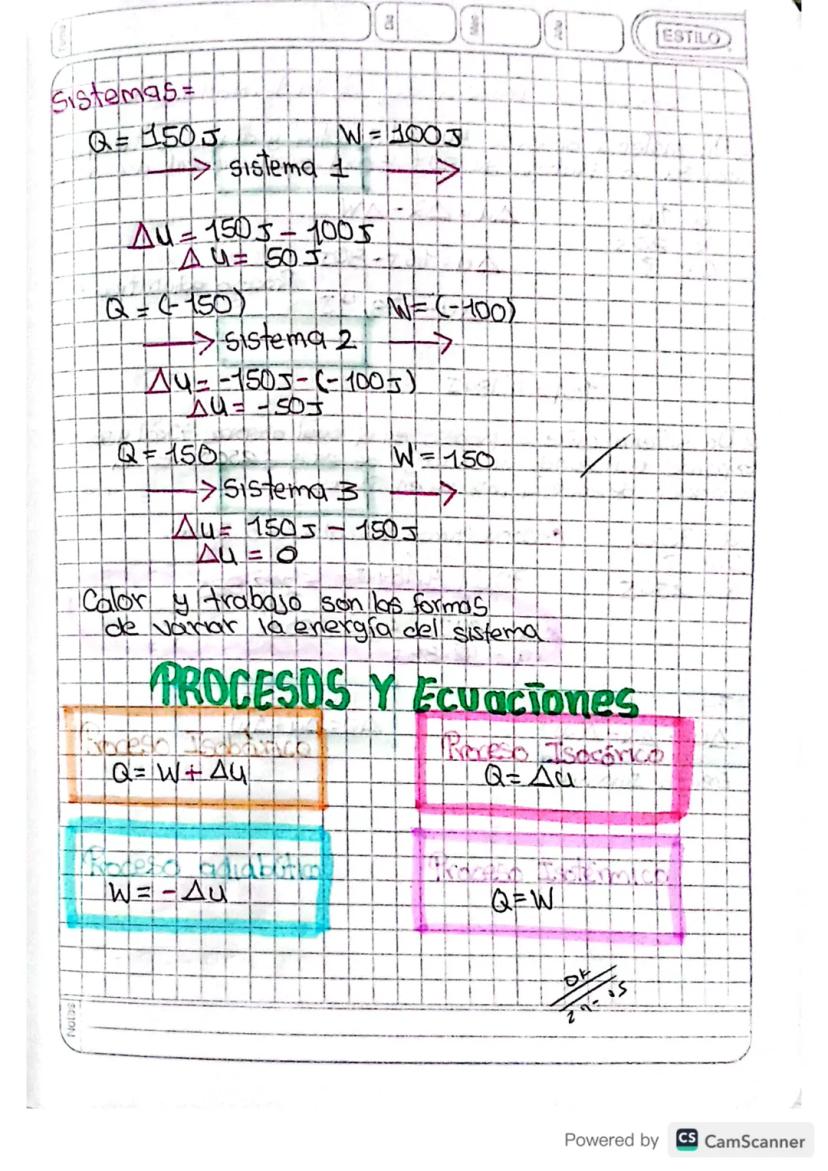 ESTILO
Sistemas=
Q= 150J W=100J
→ sistema 1 →
ΔU=150J-100J
ΔU= 50J
Q=(-150) W=(-100)
→ sistema 2 →
ΔU=-150J-(-100J)
ΔU= -50J
Q=150 W=150
→ sistema 3 →
ΔU= 150J - 150J
ΔU = 0
Calor y trabajo son las formas
de variar la energía del sistema
PROCESOS Y Ecuaciones
Proceso Isobárico Proceso Isocórico
Q= W+ ΔU Q= ΔU
Proceso adiabático Proceso Isotérmico
W= - ΔU Q=W
OK
Powered by CS CamScanner